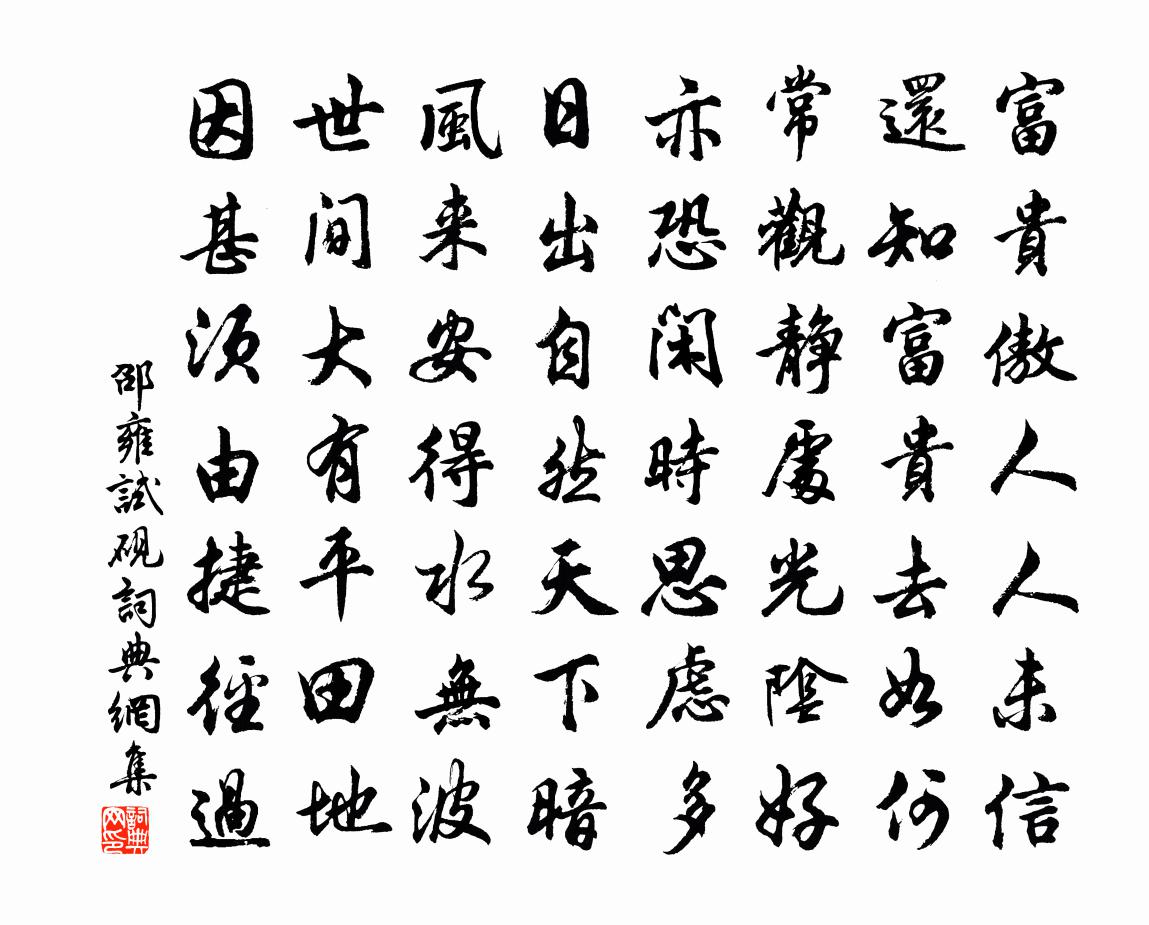 富貴傲人人未信
還知富貴去如何
常觀靜處光陰好
亦恐閑時思慮多
日出自然天下暗
風来安得水無波
世間大有平田地
因甚須由捷徑過
邵雍試硯詞典網集
詞典網印